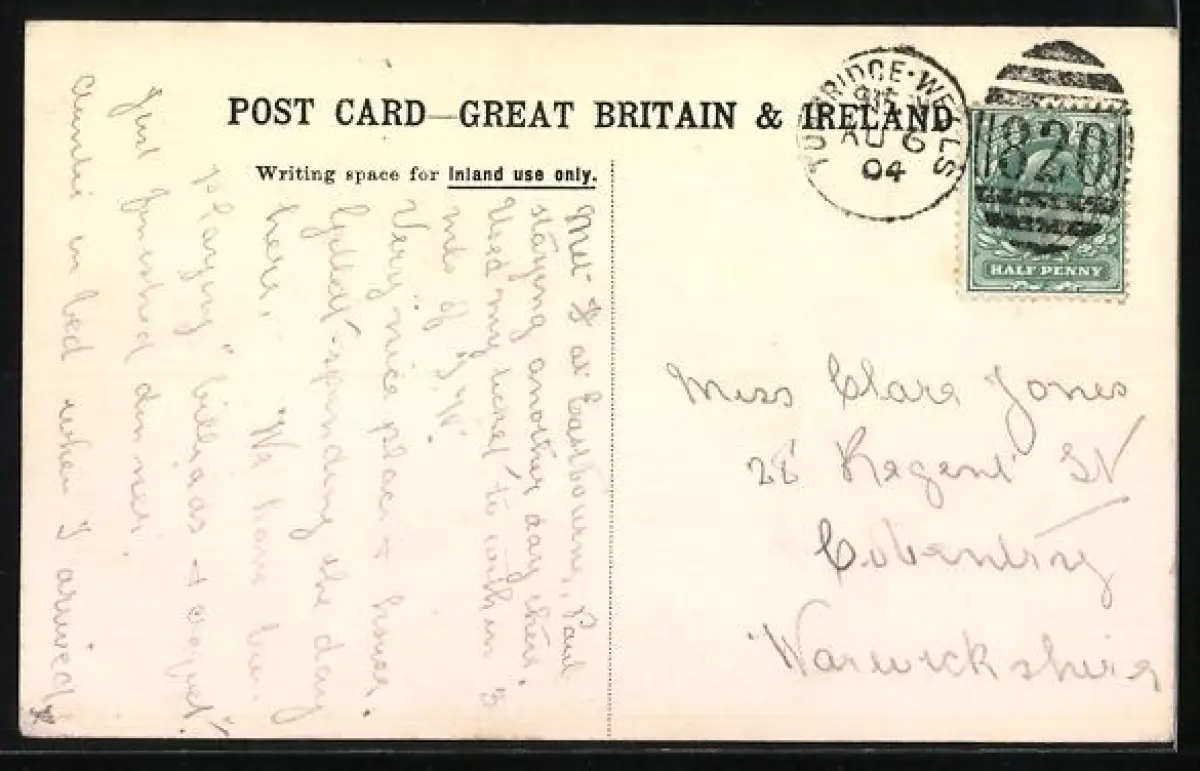 POST CARD—GREAT BRITAIN & IRELAND
Writing space for Inland use only.
TUNBRIDGE-WELLS
AU 6
04
820
HALF PENNY
Miss Clara Jones
28 Regent St
Coventry
Warwickshire
Met at Eastbourne, Paul
staying another day there.
Used my ticket to within 3
mls of T.W.
Very nice place & house.
spending the day
here. We have been
"playing" billiads &
Just finished dinner.
Auntie in bed when I arrived